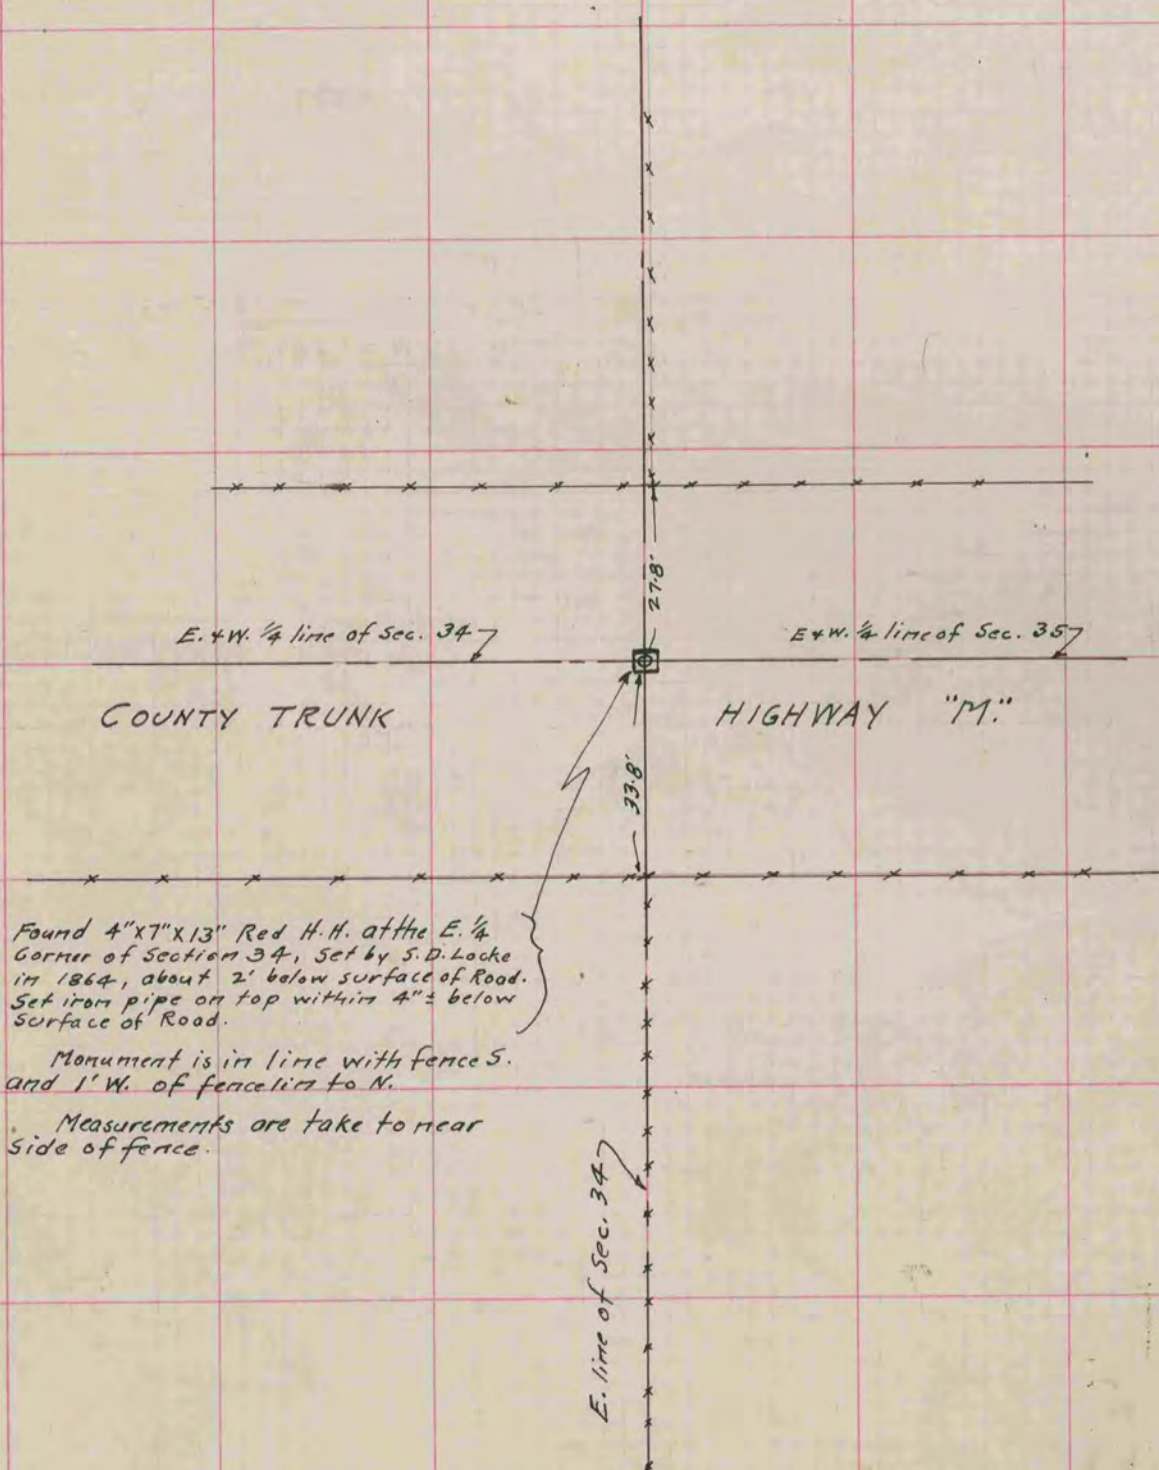 27.8'
E. & W. 1/4 line of Sec. 34
E & W. 1/4 line of Sec. 35
COUNTY TRUNK HIGHWAY "M."
33.8'
Found 4"x7"x13" Red H.H. at the E. 1/4
Corner of Section 34, Set by S.D. Locke
in 1864, about 2' below surface of Road.
Set iron pipe on top within 4"± below
Surface of Road.
Monument is in line with fence S.
and 1' W. of fence lin to N.
Measurements are take to near
Side of fence.
E. line of Sec. 34